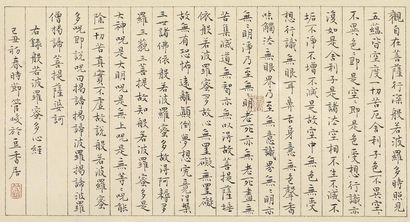 觀自在菩薩行深般若波羅多時照見
五蘊皆空度一切苦厄舍利子色不異空空
不異色色即是空空即是色受想行識亦
復如是舍利子是諸法空相不生不滅不
垢不淨不增不減是故空中無色無受
想行識無眼耳鼻舌身意無色聲香
味觸法無眼界乃至無意識界無無明亦
無無明盡乃至無老死亦無老死盡無
苦集滅道無智亦無得以無所得故菩提薩埵
依般若波羅多故心無罣礙無罣礙
故無有恐怖遠離顛倒夢想究竟涅槃
三世諸佛依般若波羅多故得阿耨多
羅三藐三菩提故知般若波羅蜜多是
大神咒是大明咒是無上咒是無等等咒能
除一切苦真實不虛故說般若波羅蜜
多咒即說咒曰揭諦揭諦波羅揭諦波羅
僧揭諦菩提薩婆訶
右錄般若波羅蜜多心經
己丑初春時節